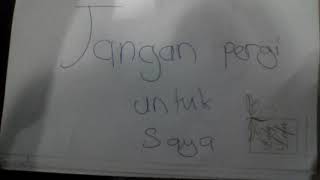 Jangan pergi
untuk
saya